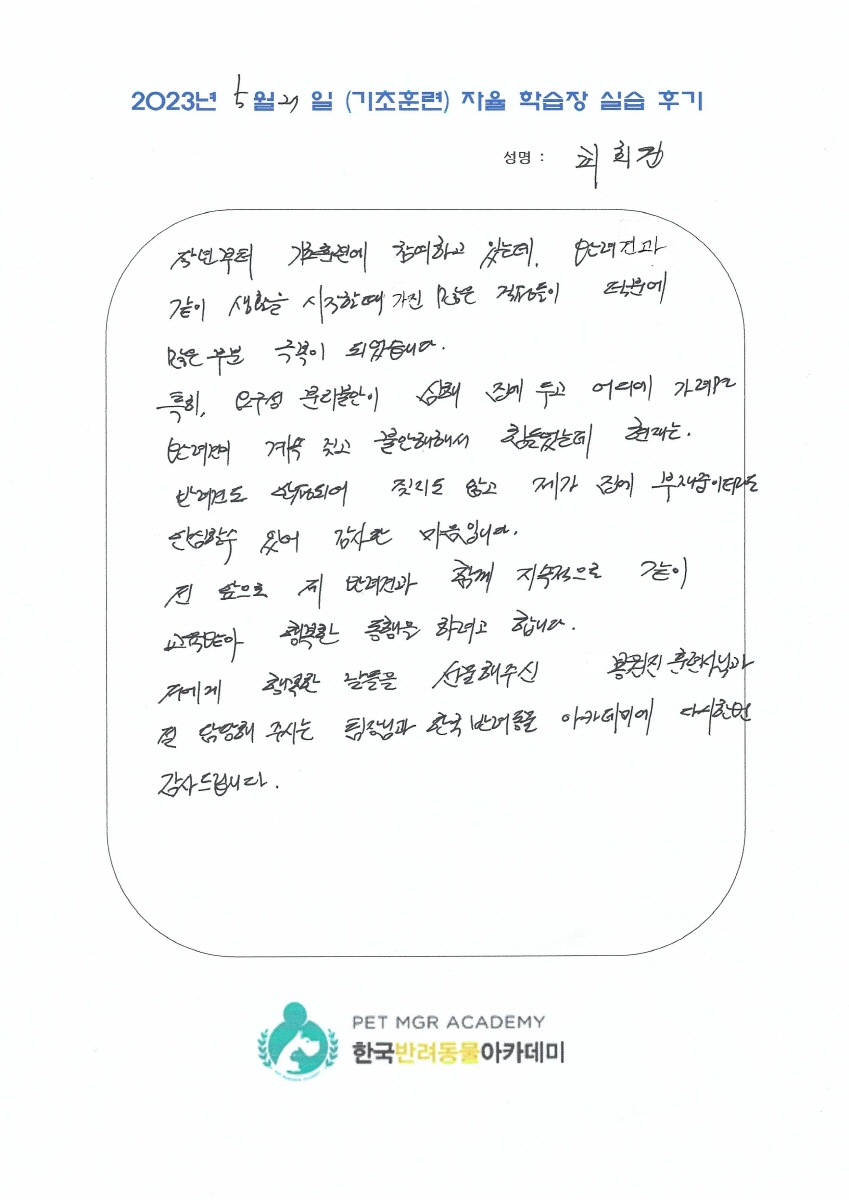 2023년 5월 21 일 (기초훈련) 자율 학습장 실습 후기
성명 : 최희진
작년부터 기초훈련에 참여하고 있는데, 반려견과
같이 생활을 시작할때 가진 많은 걱정들이 덕분에
많은 부분 극복이 되었습니다.
특히, 요구성 분리불안이 심해 집에 두고 어디에 가려면
반려견이 계속 짖고 불안해해서 힘들었는데 현재는.
반려견도 안정되어 짖지도 않고 제가 집에 부재중이더라도
안심할수 있어 감사한 마음입니다.
전 앞으로 저 반려견과 함께 지속적으로 같이
교육받아 행복한 동행을 하려고 합니다.
저에게 행복한 날들을 선물해주신 훈련사님과
절 담당해 주시는 팀장님과 한국반려동물 아카데미에 다시한번
감사드립니다.
PET MGR ACADEMY
한국반려동물아카데미